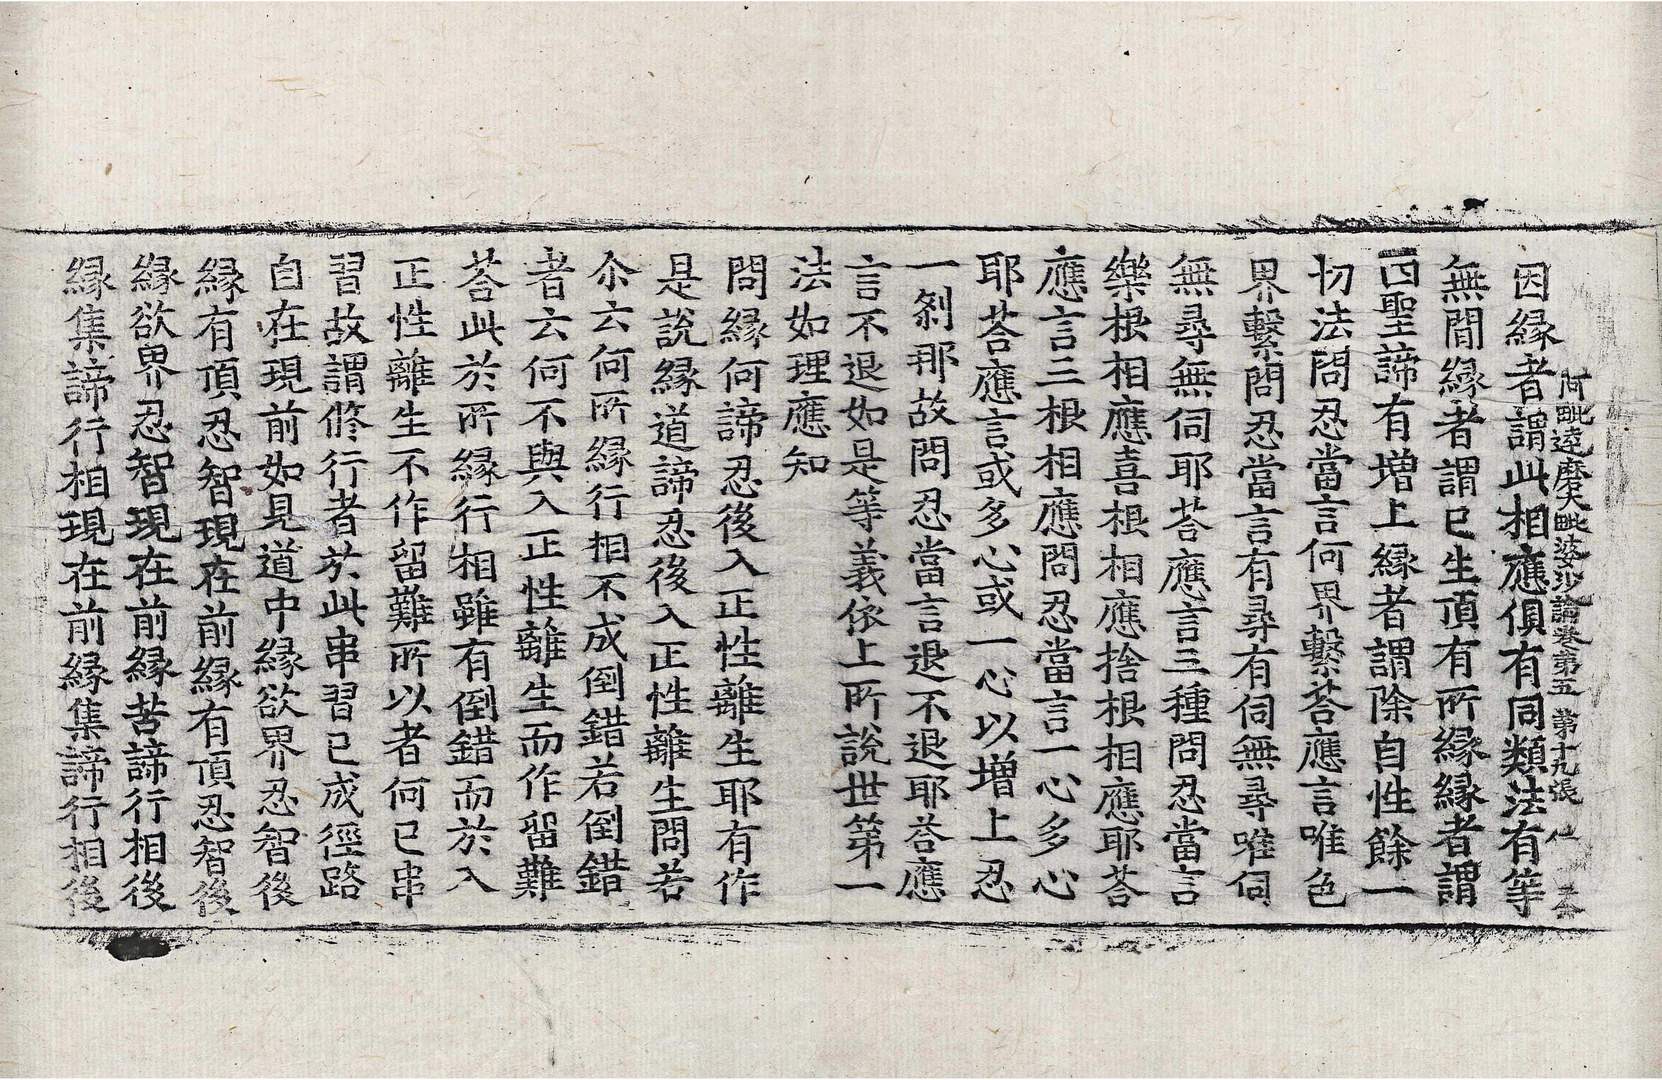 阿毗達磨大毗婆沙論卷第五 第十九張 仕
因縁者謂此相應俱有同類法有等
無間縁者謂已生頂有所縁縁者謂
四聖諦有增上縁者謂除自性餘一
切法問忍當言何界繫荅應言唯色
界繫問忍當言有尋有伺無尋唯伺
無尋無伺耶荅應言三種問忍當言
樂根相應喜根相應捨根相應耶荅
應言三根相應問忍當言一心多心
耶荅應言或多心或一心以增上忍
一剎那故問忍當言退不退耶荅應
言不退如是等義依上所說世第一
法如理應知
問縁何諦忍後入正性離生耶有作
是說縁道諦忍後入正性離生問若
尒云何所縁行相不成倒錯若倒錯
者云何不與入正性離生而作留難
荅此於所縁行相雖有倒錯而於入
正性離生不作留難所以者何已串
習故謂脩行者於此串習已成徑路
自在現前如見道中縁欲界忍智後
縁有頂忍智現在前縁有頂忍智後
縁欲界忍智現在前縁苦諦行相後
縁集諦行相現在前縁集諦行相後